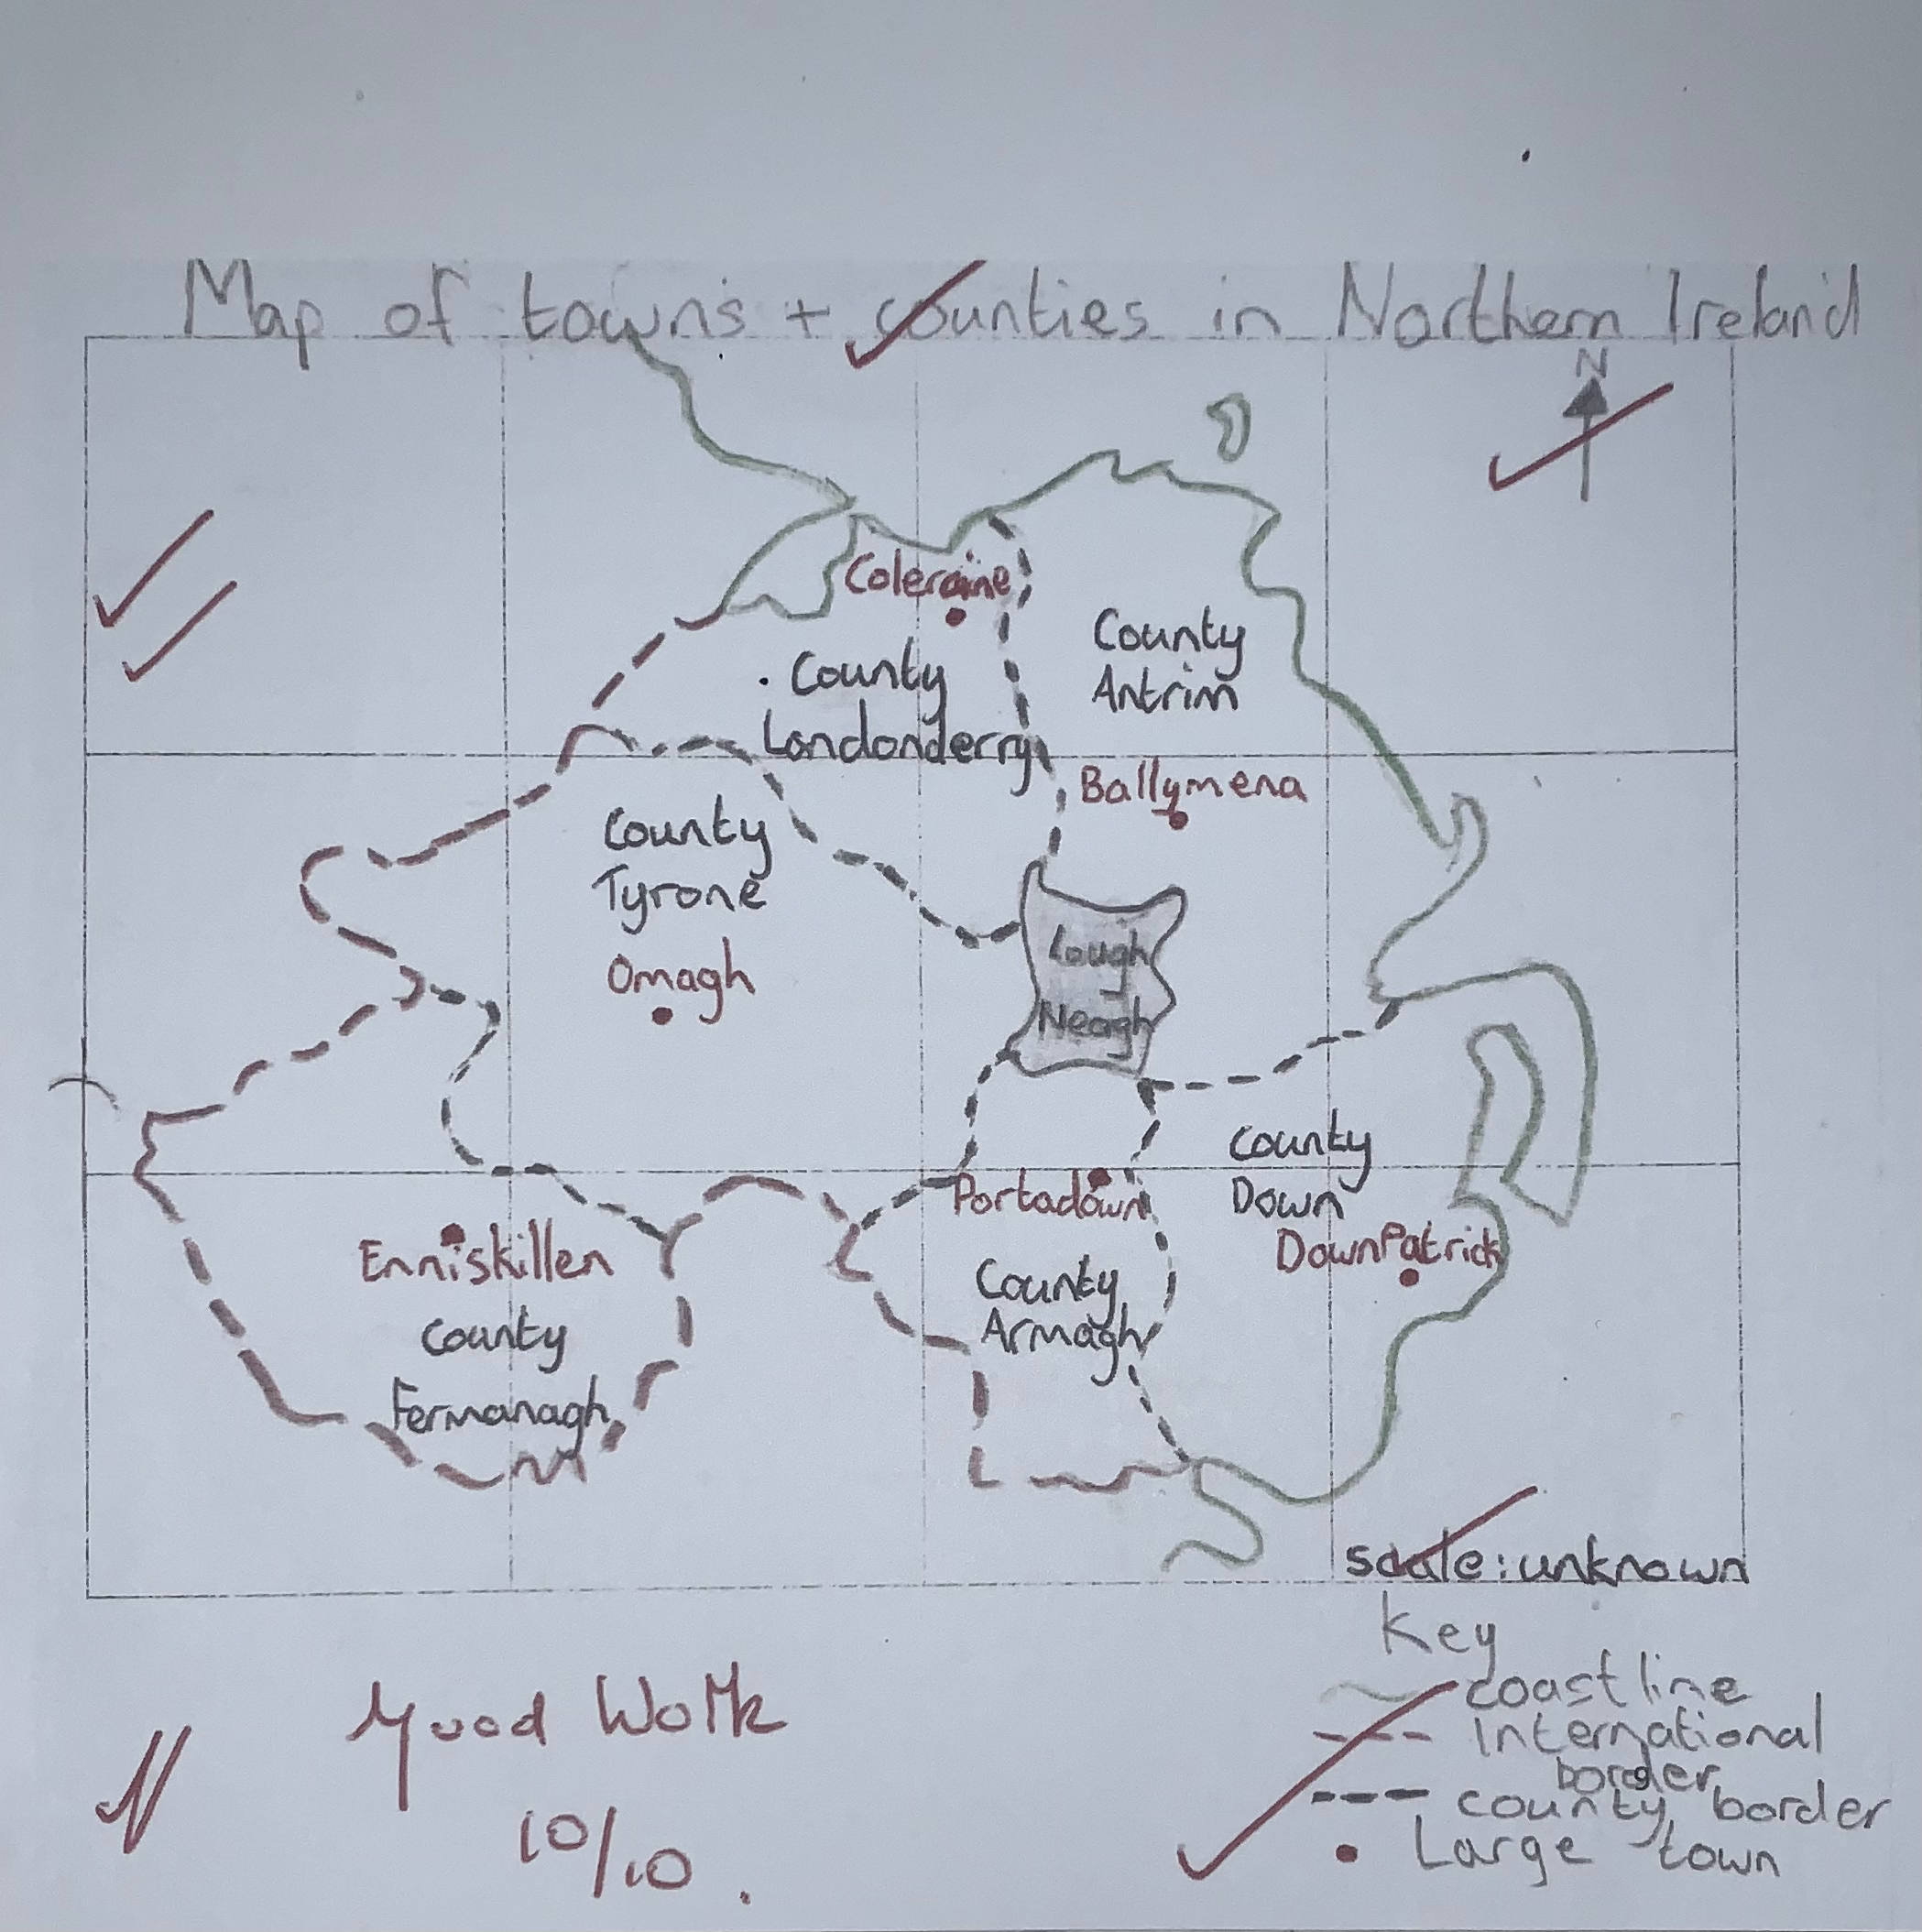 Map of towns + counties in Northern Ireland
N
Coleraine
County
Antrim
County
Londonderry
Ballymena
County
Tyrone
Omagh
Lough
Neagh
County
Down
Portadown
DownPatrick
Enniskillen
County
Fermanagh
County
Armagh
scale: unknown
Key
coastline
International
border
county border
Large town
Good Work
10/10.